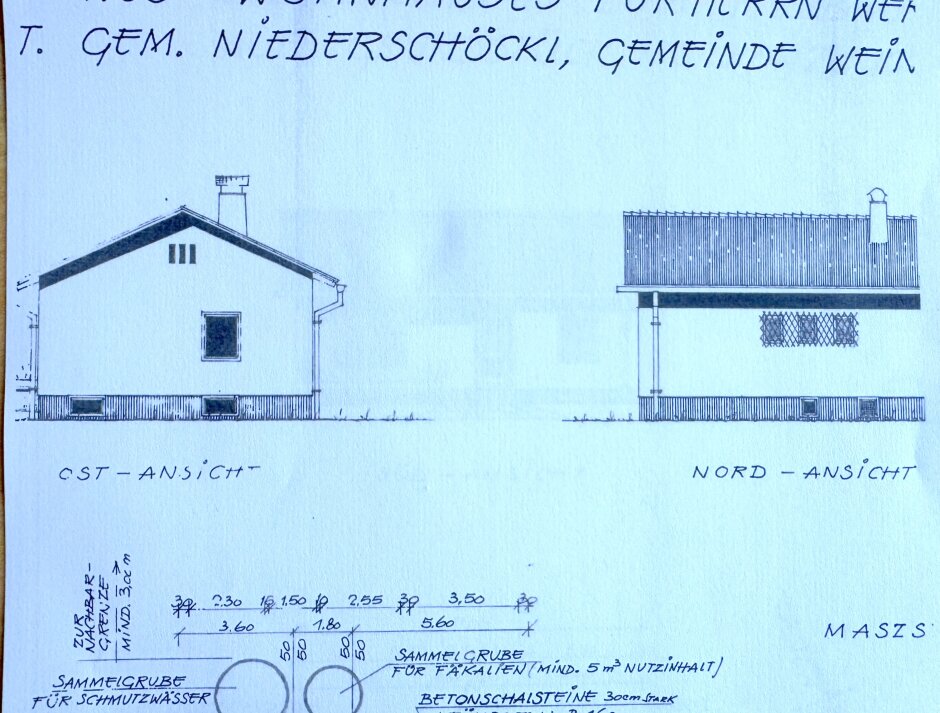 WOHNHAUSES FÜR HERRN WER
T. GEM. NIEDERSCHÖCKL, GEMEINDE WEIN
OST – ANSICHT
NORD – ANSICHT
ZUR
NACHBAR-
GRENZE
MIND. 3,00 m
30 2.30 15 1.50 10 2.55 30 3,50 30
3.60 1.80 5.60
50 50 50 50
MASZS
SAMMELGRUBE
FÜR FÄKALIEN (MIND. 5 m³ NUTZINHALT)
SAMMELGRUBE
FÜR SCHMUTZWÄSSER
BETONSCHALSTEINE 30cm STARK